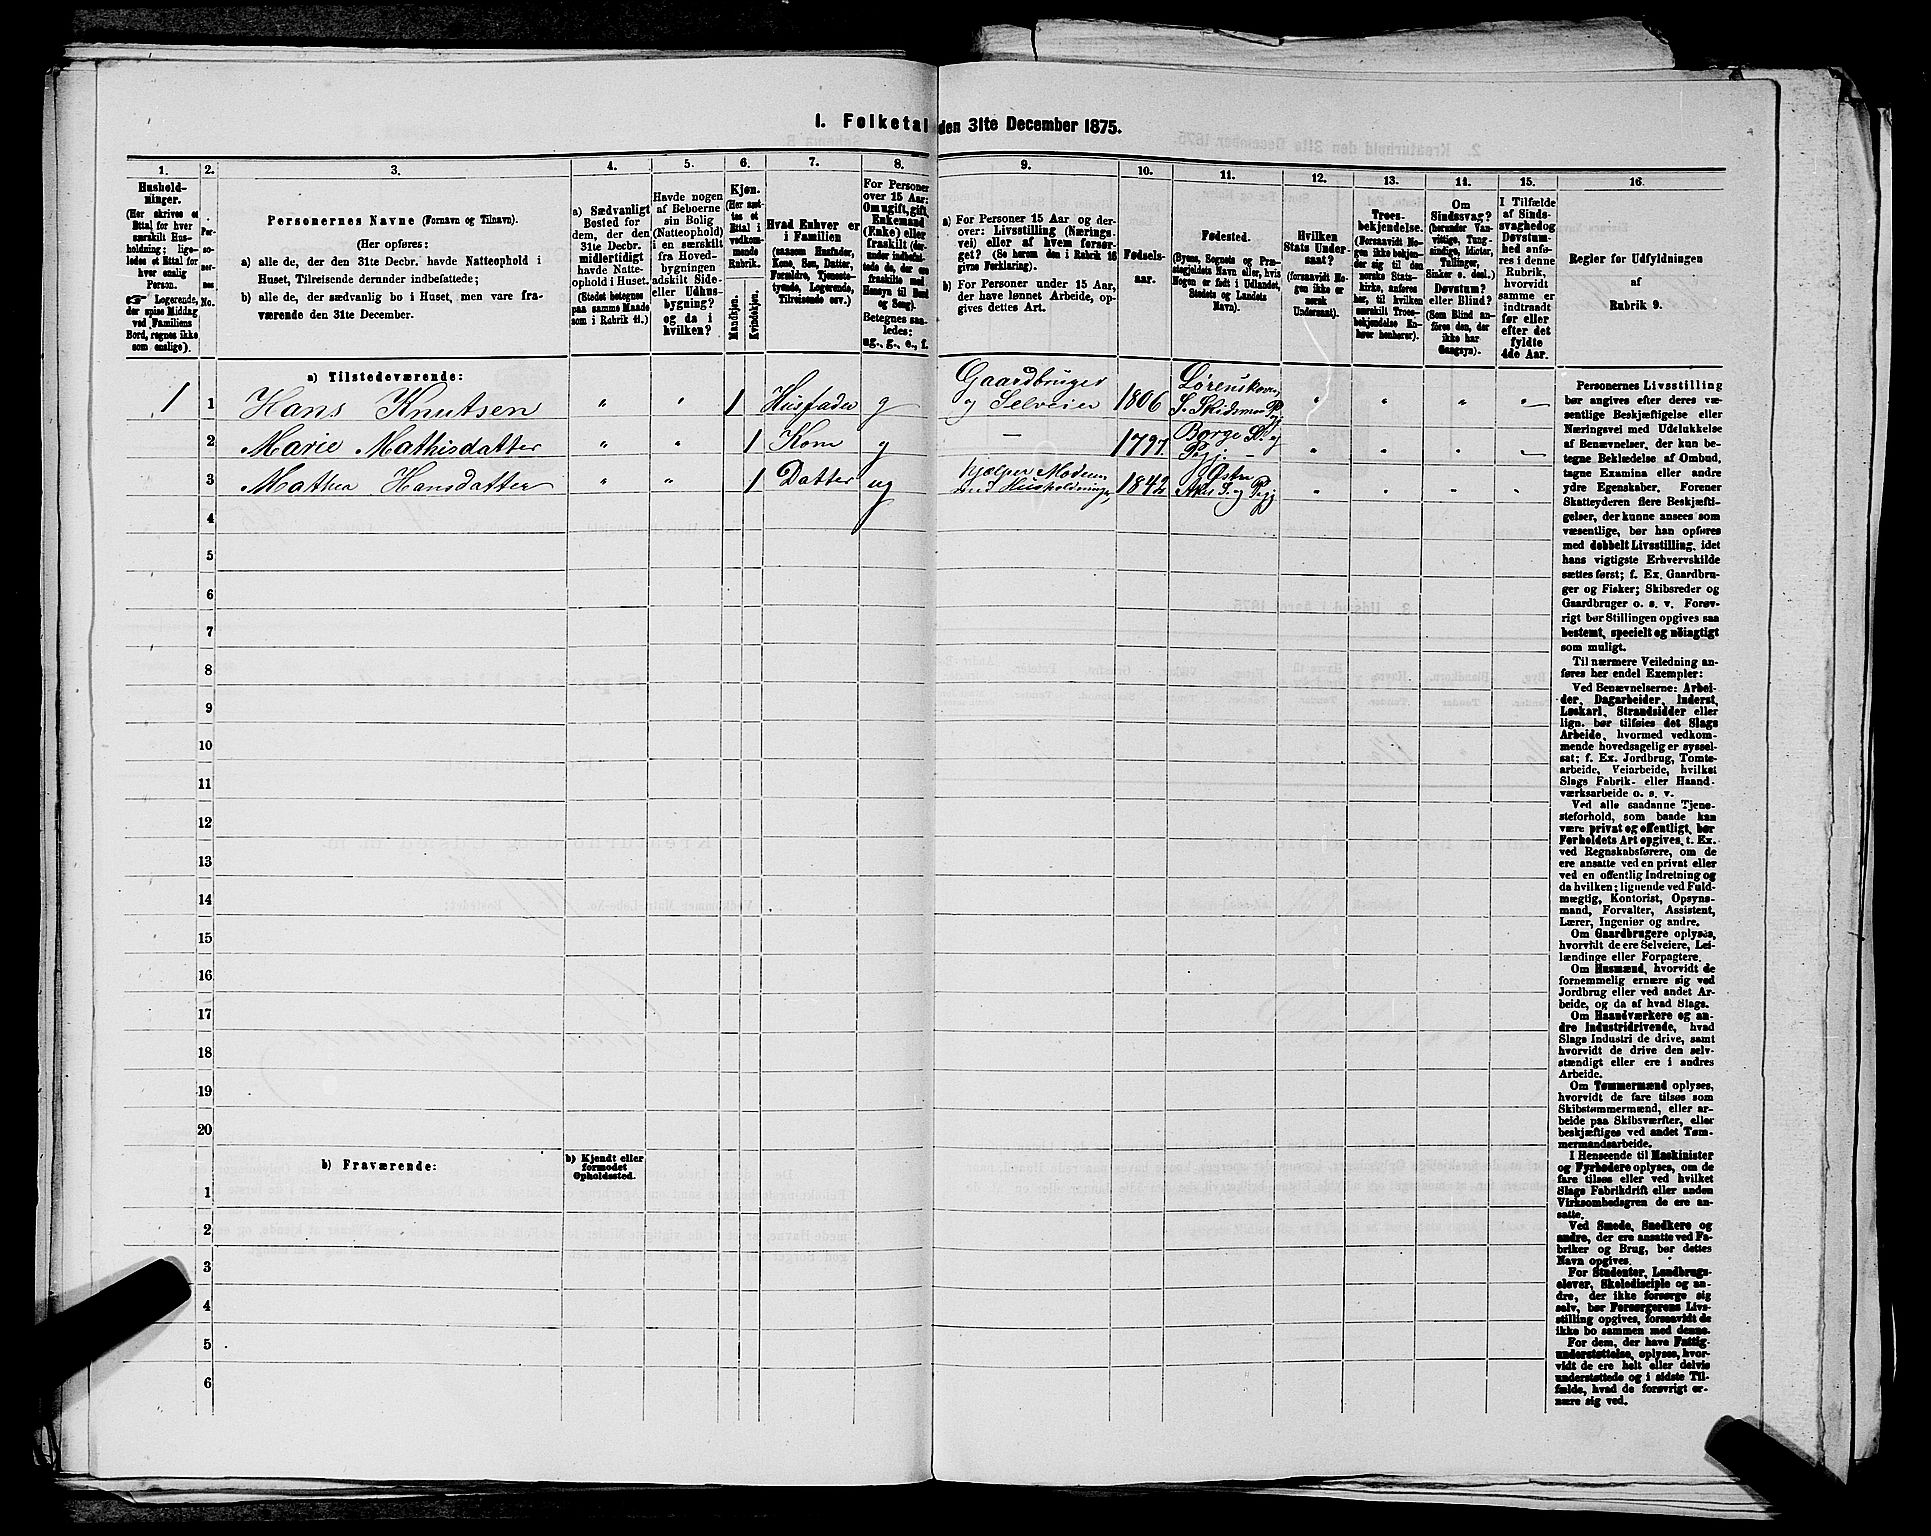 I. Folketal den 31te December 1875.
1. 2. 3. 4. 5. 6. 7. 8. 9. 10. 11. 12. 13. 14. 15. 16.
Hushold-
ninger.
(Her skrives et
Ettal for hver
særskilt Hus-
holdning; lige-
ledes et Ettal for
hver enslig
Person.
☞ Logerende,
der spise Middag
ved Familiens
Bord, regnes ikke
som enslige).
Per-
so-
ner-
nes
No.
Personernes Navne (Fornavn og Tilnavn).
(Her opføres:
a) alle de, der den 31te Decbr. havde Natteophold i
Huset, Tilreisende derunder indbefattede;
b) alle de, der sædvanlig bo i Huset, men vare fra-
værende den 31te December.
a) Sædvanligt
Bosted for
dem, der den
31te Decbr.
midlertidigt
havde Natte-
ophold i Huset.
(Stedet betegnes
paa samme Maade
som i Rubrik 11.)
Havde nogen
af Beboerne
sin Bolig
(Natteophold)
i en særskilt
fra Hoved-
bygningen
adskilt Side-
eller Udhus-
bygning?
og da i
hvilken?
Kjøn.
(Her sæt-
tes et
Ettal i
vedkom-
mende
Rubrik.
Mandkjøn.
Kvindekjøn.
Hvad Enhver er
i Familien
(saasom Husfader,
Kone, Søn, Datter,
Forældre, Tjeneste-
tyende, Logerende,
Tilreisende osv.)
For Personer
over 15 Aar:
Om ugift, gift,
Enkemand
(Enke) eller
fraskilt (der-
under indbefat-
tede de, der ere
fraskilte med
Hensyn til Bord
og Seng).
Betegnes saa-
ledes:
ug., g., e., f.
a) For Personer 15 Aar og der-
over: Livsstilling (Nærings-
vei) eller af hvem forsør-
get? (Se herom den i Rubrik 16
givne Forklaring).
b) For Personer under 15 Aar,
der have lønnet Arbeide, op-
gives dettes Art.
Fødsels-
aar.
Fødested.
(Byens, Sognets og Præ-
stegjeldets Navn eller, hvis
Nogen er født i Udlandet,
Stedets og Landets
Navn).
Hvilken
Stats Under-
saat?
(forsaavidt No-
gen ikke er
norsk
Undersaat).
Troes-
bekjendelse.
(Forsaavidt No-
gen ikke bekjen-
der sig til den
norske Stats-
kirke, anføres
her, til hvilken
særskilt Troes-
bekjendelse En-
hver henhører).
Om
Sindssvag?
(herunder Van-
vittige, Tung-
sindige, Idioter,
Tullinger,
Sinker o. desl.)
Døvstum?
eller Blind?
(Som Blind an-
føres den, der
ikke har
Gangsyn).
I Tilfælde
af Sinds-
svaghed og
Døvstum-
hed anfø-
res i denne
Rubrik,
hvorvidt
samme er
indtraadt
før eller
efter det
fyldte
4de Aar.
Regler for Udfyldningen
af
Rubrik 9.
a) Tilstedeværende:
1 1 Hans Knutsen " " 1 Husfader g Gaardbruger og Selveier 1806 Lørenskoven S. Skidsmo Pgj " " " "
2 Marie Mathisdatter " " 1 Kone g — 1797. Borge S. og Pgj. " " " "
3 Mathea Hansdatter " " 1 Datter ug hjælper Moderen med Husholdningen 1842 Østre Aker S. og Pgj " " " "
4
5
6
7
8
9
10
11
12
13
14
15
16
17
18
19
20
b) Fraværende:
b) Kjendt eller
formodet
Opholdssted.
1
2
3
4
5
6
Personernes Livsstilling
bør angives efter deres væ-
sentlige Beskjæftigelse eller
Næringsvei med Udelukkelse
af Benævnelser, der kun be-
tegne Beklædelse af Ombud,
tagne Examina eller andre
ydre Egenskaber. Forener
Skatteyderen flere Beskjæfti-
gelser, der kunne ansees som
væsentlige, bør han opføres
med dobbelt Livsstilling, idet
hans vigtigste Erhvervskilde
sættes først; f. Ex. Gaardbru-
ger og Fisker; Skibsreder og
Gaardbruger o. s. v. Forøv-
rigt bør Stillingen opgives saa
bestemt, specielt og nöiagtigt
som muligt.
Til nærmere Veiledning an-
føres her endel Exempler:
Ved Benævnelserne: Arbei-
der, Dagarbeider, Inderst,
Løskarl, Strandsidder eller
lign. bør tilføies det Slags
Arbeide, hvormed vedkom-
mende hovedsagelig er syssel-
sat; f. Ex. Jordbrug, Tomte-
arbeide, Veiarbeide, hvilket
Slags Fabrik- eller Haand-
værksarbeide o. s. v.
Ved alle saadanne Tjene-
steforhold, som baade kan
være privat og offentligt, bør
Forholdets Art opgives, t. Ex.
ved Regnskabsførere, om de
ere ansatte ved en privat eller
ved en offentlig Indretning og
da hvilken; lignende ved Fuld-
mægtig, Kontorist, Opsyns-
mand, Forvalter, Assistent,
Lærer, Ingeniør og andre.
Om Gaardbrugere oplyses,
hvorvidt de ere Selveiere, Lei-
lændinge eller Forpagtere.
Om Husmænd, hvorvidt de
fornemmelig ernære sig ved
Jordbrug eller ved andet Ar-
beide, og da af hvad Slags.
Om Haandværkere og an-
dre Industridrivende, hvad
Slags Industri de drive, samt
hvorvidt de drive den selv-
stændigt eller ere i andres
Arbeide.
Om Tømmermænd oplyses,
hvorvidt de fare tilsøs som
Skibstømmermænd, eller ar-
beide paa Skibsværfter, eller
beskjæftiges ved andet Tøm-
mermandsarbeide.
I Henseende til Maskinister
og Fyrbødere oplyses, om de
fare tilsøs eller ved hvilket
Slags Fabrikdrift eller anden
Virksombedsgren de ere an-
satte.
Ved Smede, Snedkere og
andre, der ere ansatte ved Fa-
briker og Brug, bør dettes
Navn opgives.
For Studenter, Landbrugs-
elever, Skoledisciple og an-
dre, der ikke forsørge sig
selv, bør Forsørgerens Livs-
stilling opgives, forsaavidt de
ikke bo sammen med denne.
For dem, der have Fattig-
understøttelse, oplyses, hvor-
vidt de ere helt eller delvis
understøttede og i sidste Til-
fælde, hvad de forøvrigt er-
nære sig ved.